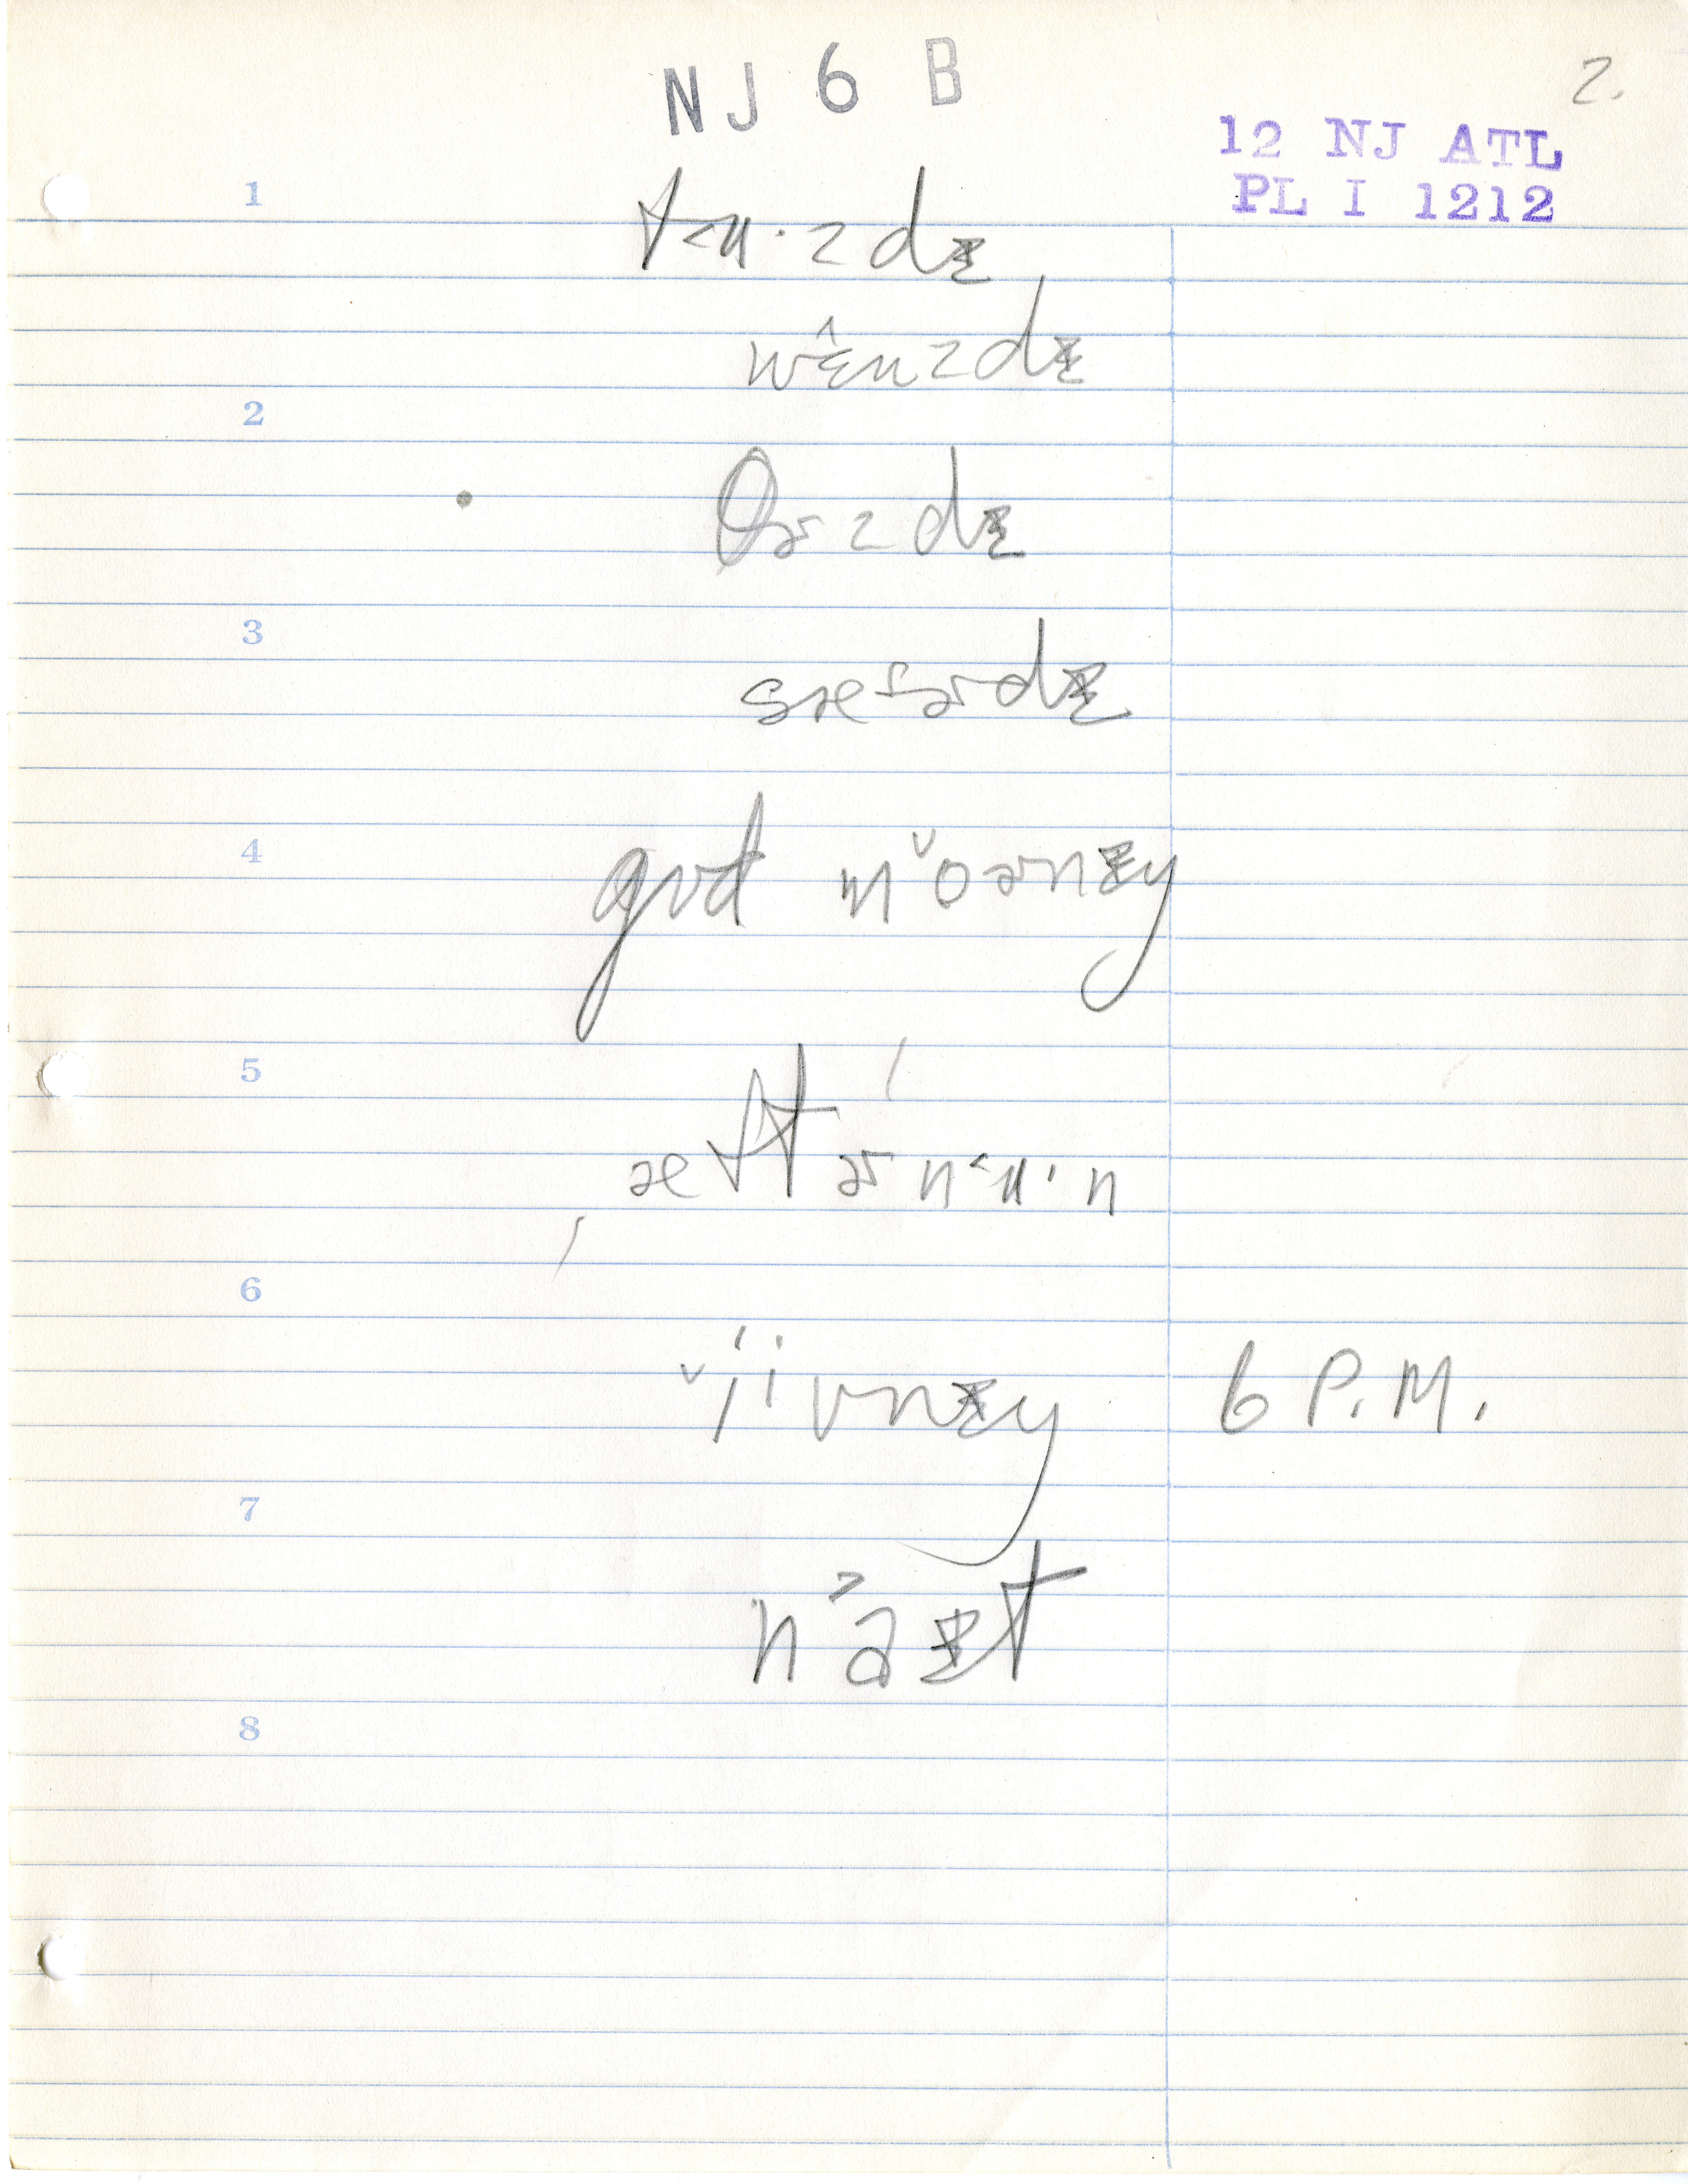 NJ 6 B
2.
12 NJ ATL
PL I 1212
1
t˂ʉ·zdɪ
wɛ̂nzdɪ
2
θɚzdɪ
3
sæɾɚdɪ
4
gʊd mo̬ɚnɪŋ
5
æftɚn˂ʉ·n
6
i̬ivnɪŋ 6 P.M.
7
na˃ɪt
8